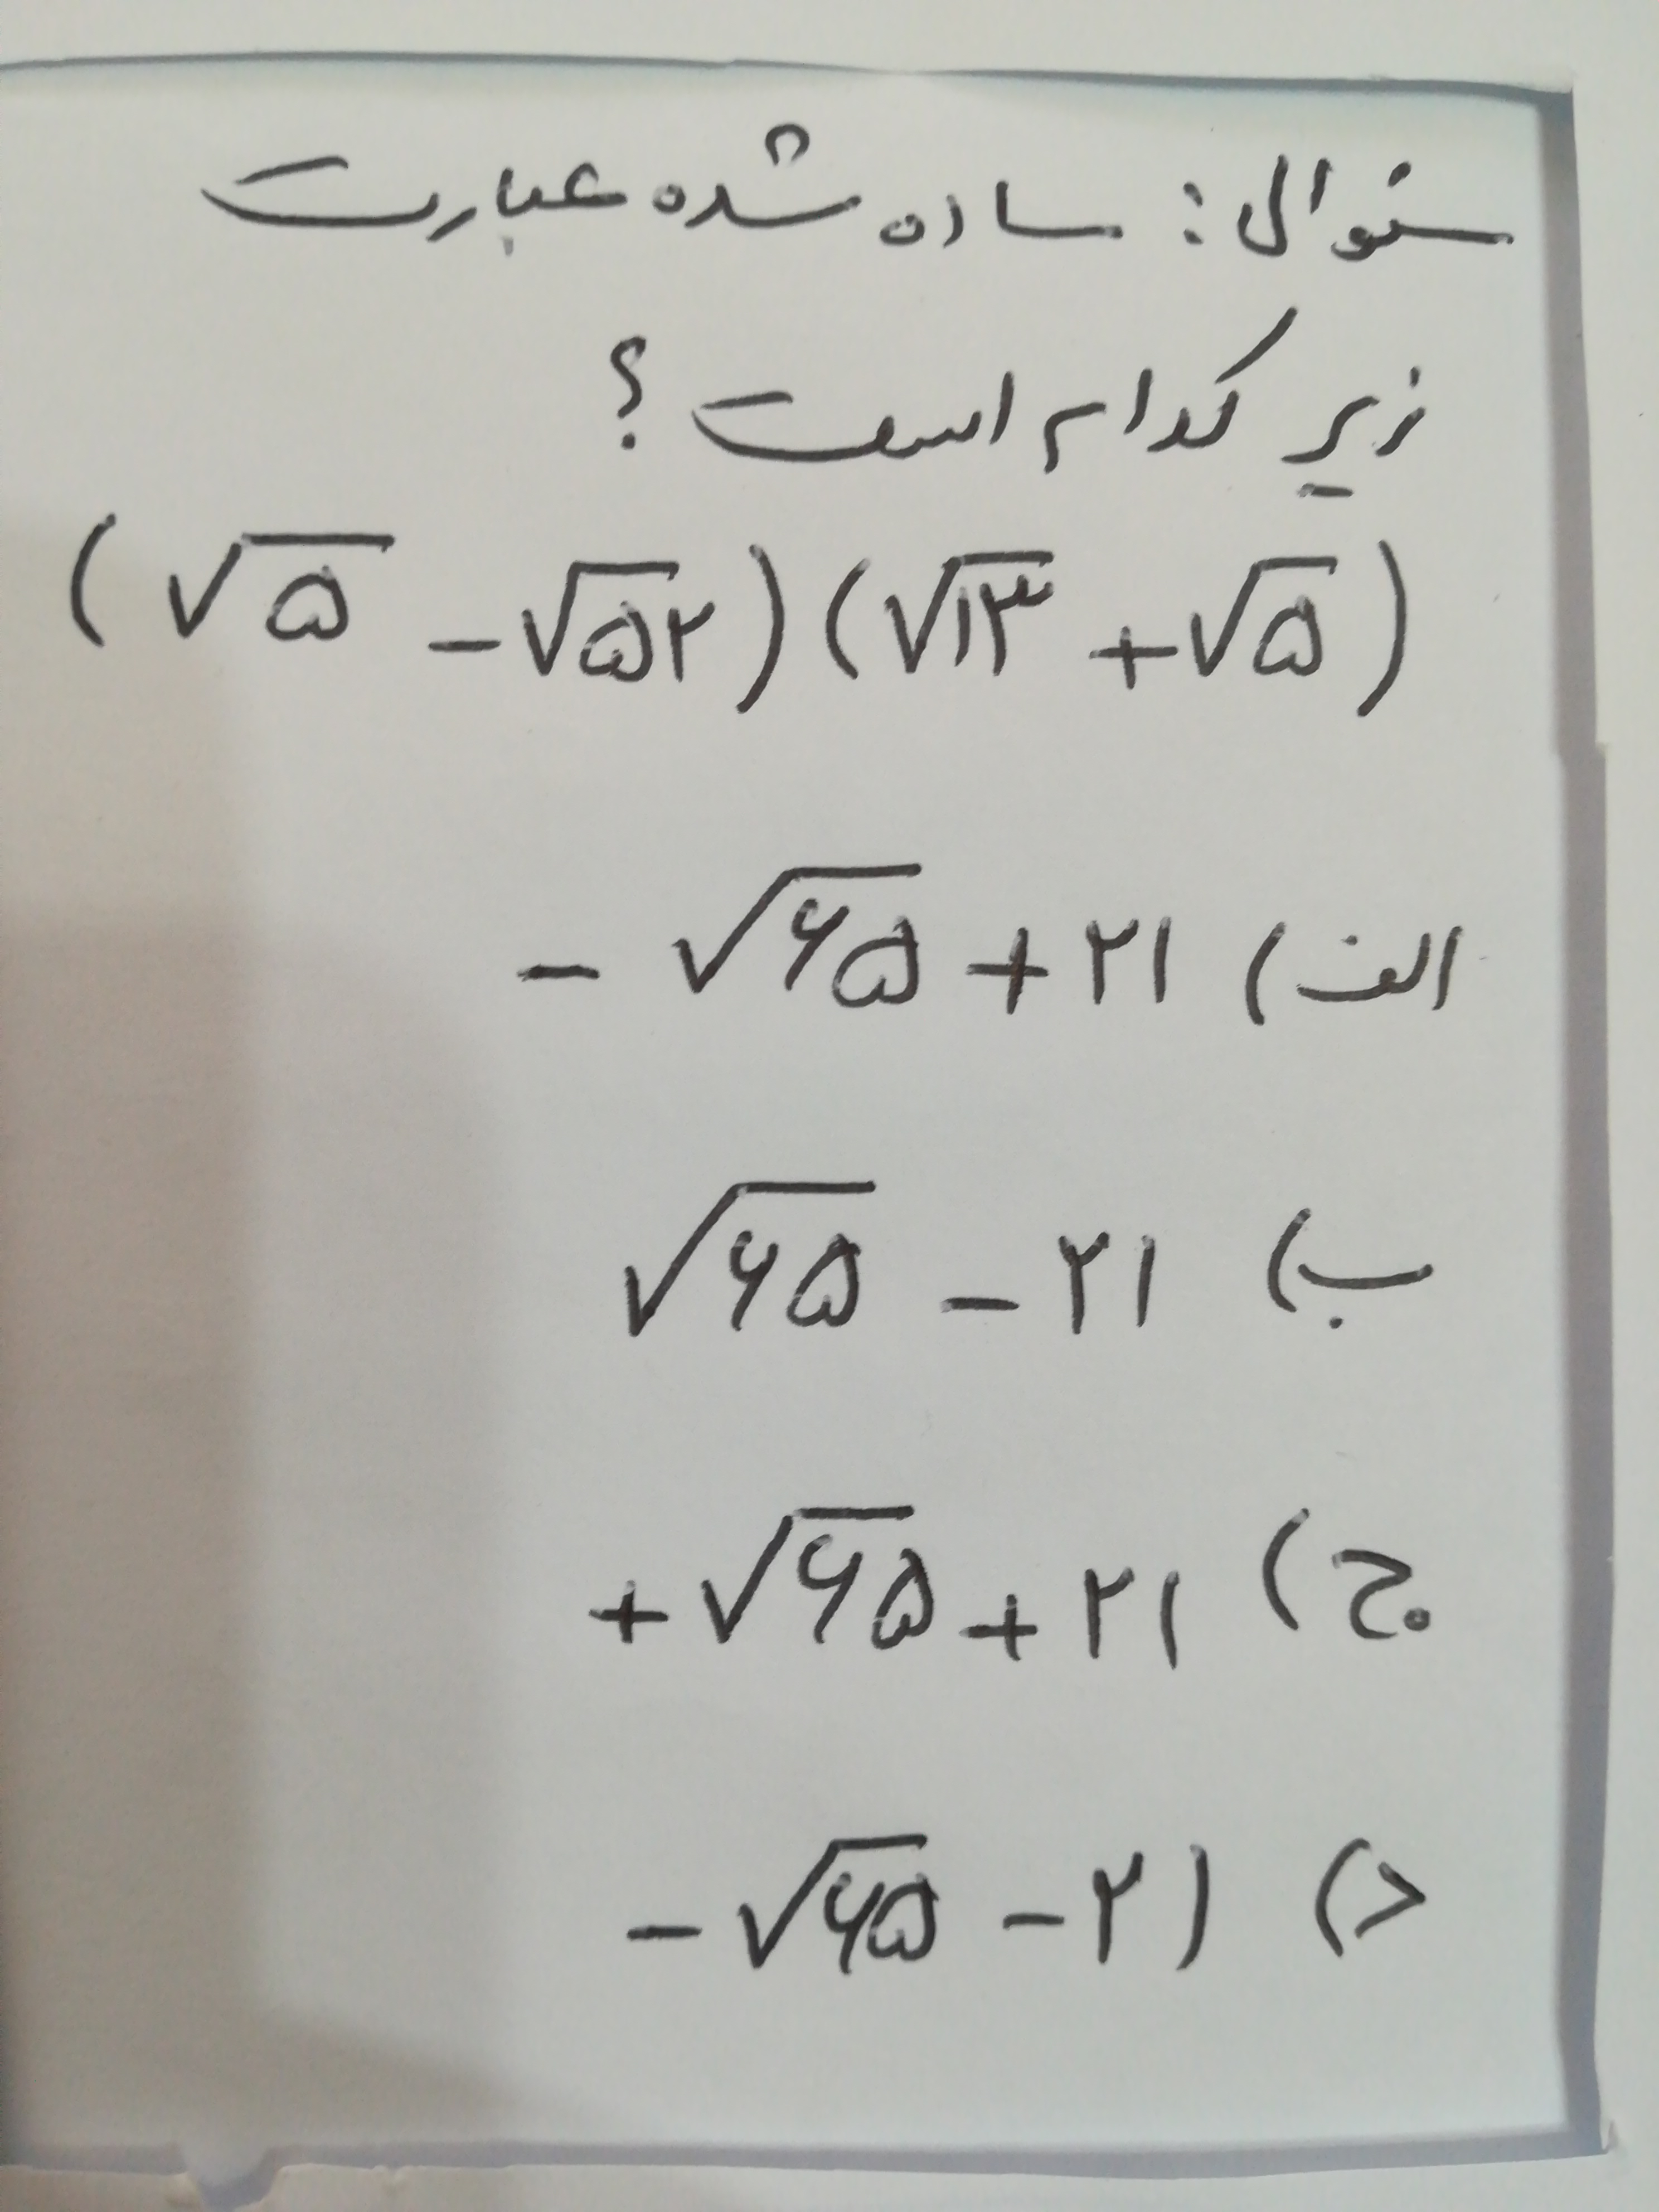 سئوال: ساده شده عبارت
زیر کدام است؟
(√۵ - √۵۲)(√۱۳ + √۵)
الف) -√۶۵ + ۲۱
ب) √۶۵ - ۲۱
ج) +√۶۵ + ۲۱
د) -√۶۵ - ۲۱